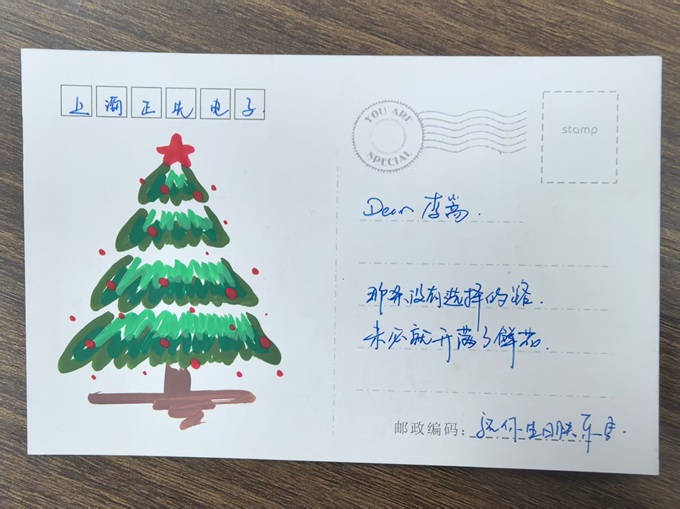 上海正先电子
YOU ARE
SPECIAL
stamp
Dear 李嵩.
那条没有选择的路.
未必就开满了鲜花.
邮政编码: 祝你生日快乐